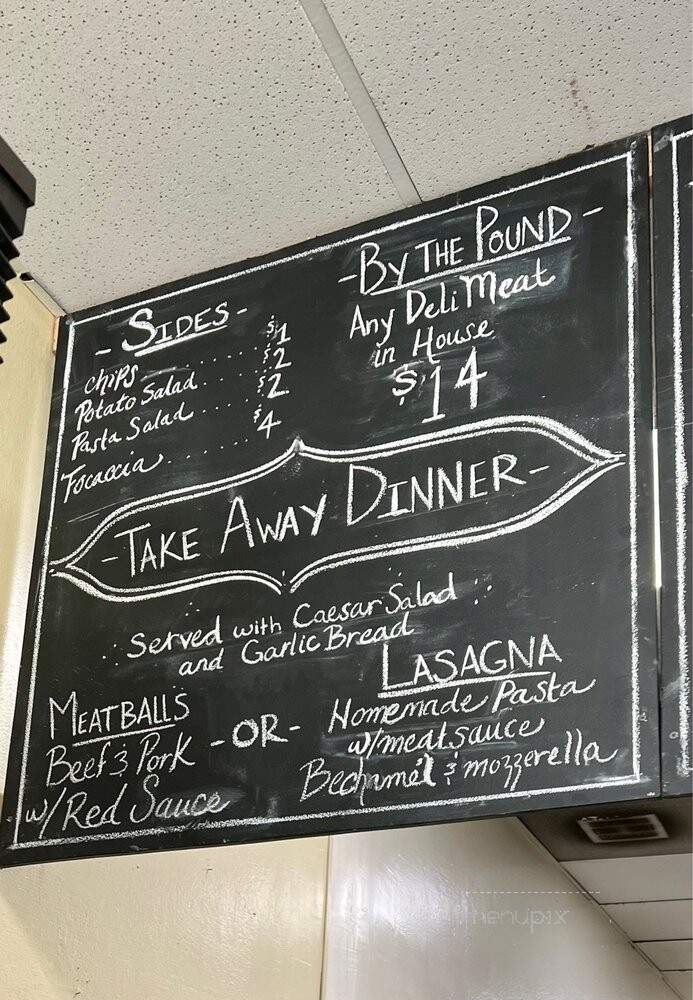 - SIDES -
chips ........ $1
Potato Salad ..... $2
Pasta Salad ..... $2
Focaccia ....... $4
- BY THE POUND -
Any Deli Meat
in House
$14
- TAKE AWAY DINNER -
Served with Caesar Salad
and Garlic Bread
MEATBALLS
Beef & Pork
w/Red Sauce
- OR -
LASAGNA
Homemade Pasta
w/meatsauce
Bechamel & mozzerella
menupix